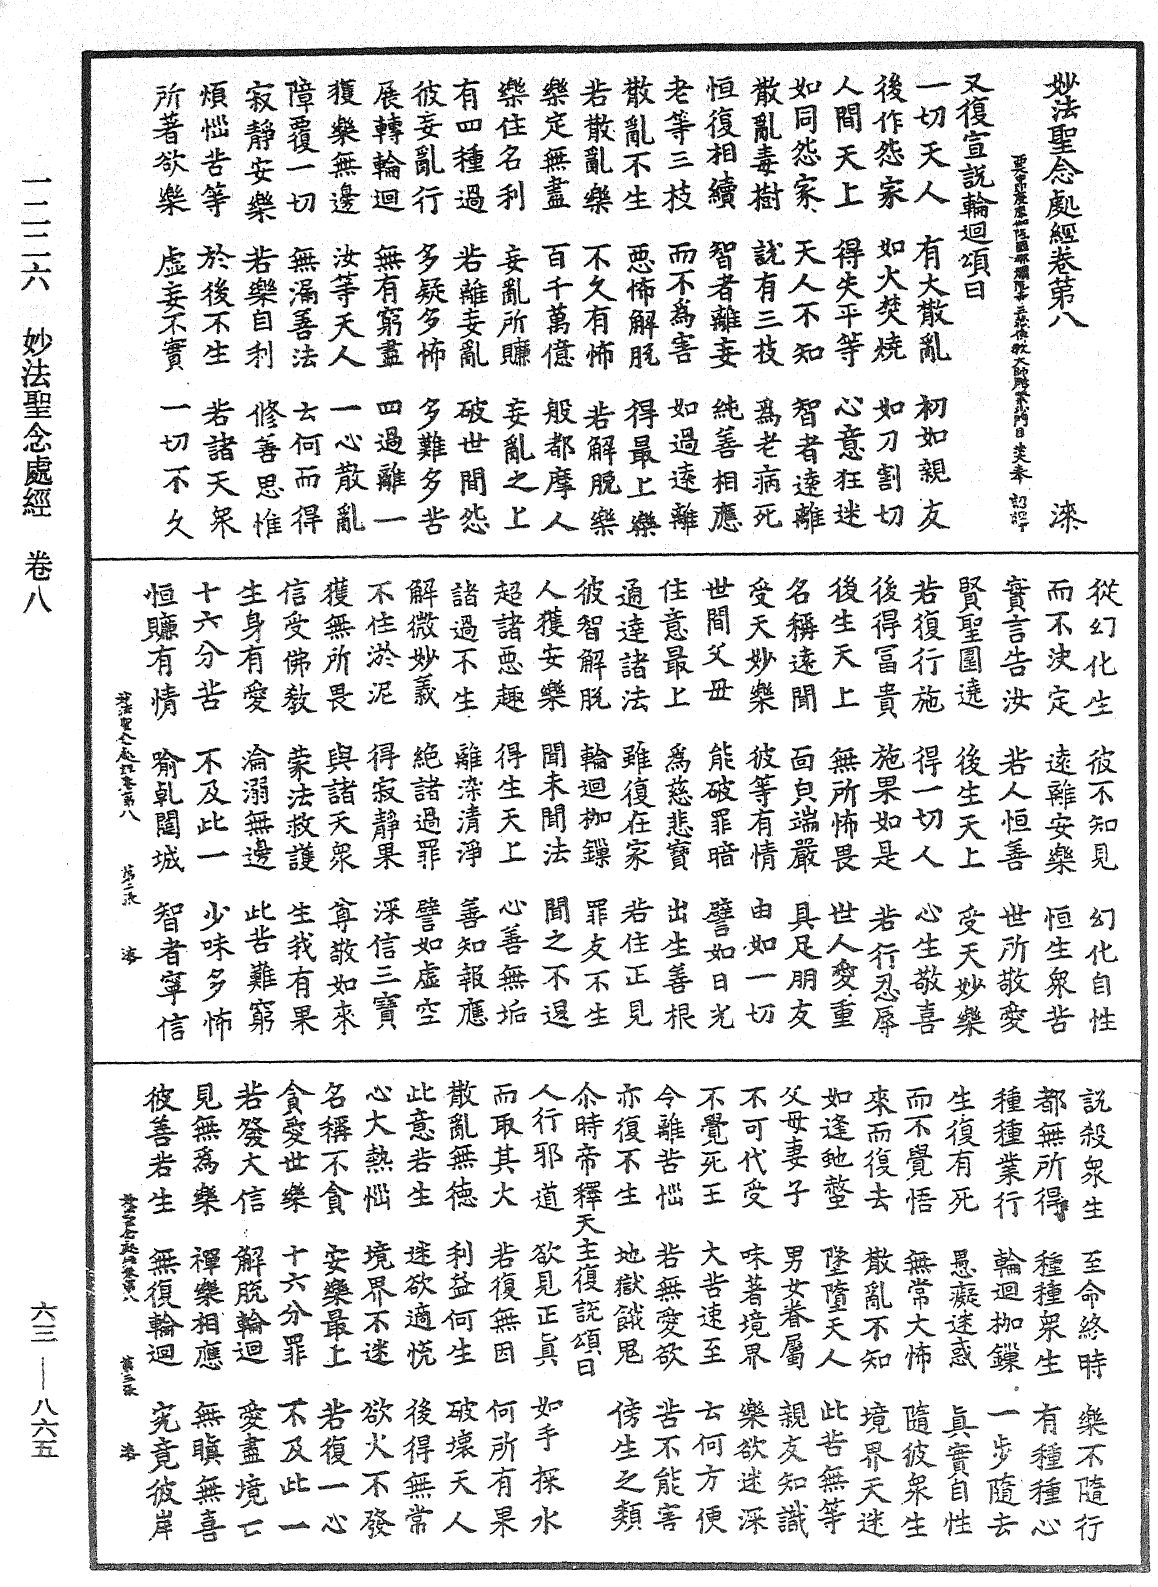 妙法聖念處經卷第八 漆
又復宣說輪迴頌曰
一切天人 有大散亂 初如親友
後作怨家 如火焚燒 如刀割切
人間天上 得失平等 心意狂迷
如同怨家 天人不知 智者遠離
散亂毒樹 說有三技 為老病死
恒復相續 智者離妄 純善相應
老等三技 而不為害 如過遠離
散亂不生 惡怖解脫 得最上樂
若散亂樂 不久有怖 若解脫樂
樂定無盡 百千萬億 般都摩人
樂住名利 妄亂所賺 妄亂之上
有四種過 若離妄亂 破世間怨
彼妄亂行 多疑多怖 多難多苦
展轉輪迴 無有窮盡 四過離一
獲樂無邊 汝等天人 一心散亂
障覆一切 無漏善法 云何而得
寂靜安樂 若樂自利 修善思惟
煩惱苦等 於後不生 若諸天眾
所著欲樂 虛妄不實 一切不久
從幻化生 彼不知見 幻化自性
而不決定 遠離安樂 恒生眾苦
實言告汝 若人恒善 世所敬愛
賢聖圍遶 後生天上 受天妙樂
若復行施 得一切人 心生敬喜
後得冨貴 施果如是 若行忍辱
後生天上 無所怖畏 世人愛重
名稱遠聞 面皃端嚴 具足朋友
受天妙樂 彼等有情 由如一切
世間父母 能破罪暗 譬如日光
住意最上 為慈悲寶 出生善根
通達諸法 雖復在家 若住正見
彼智解脫 輪迴枷鏁 罪友不生
人獲安樂 聞未聞法 聞之不退
超諸惡趣 得生天上 心善無垢
諸過不生 離染清淨 善知報應
解微妙義 絕諸過罪 譬如虛空
不住淤泥 得寂靜果 深信三寶
獲無所畏 與諸天眾 尊敬如來
信受佛教 蒙法救護 生我有果
生身有愛 淪溺無邊 此苦難窮
十六分苦 不及此一 少味多怖
恒賺有情 喻乹闥城 智者寧信
妙法聖念處經卷第八 第二張 漆
說殺眾生 至命終時 樂不隨行
都無所得 種種眾生 有種種心
種種業行 輪迴枷鏁 一步隨去
生復有死 愚癡迷惑 真實自性
而不覺悟 無常大怖 隨彼眾生
來而復去 散亂不知 境界天迷
如逢虵螫 墜墮天人 此苦無等
父母妻子 男女眷屬 親友知識
不可代受 味著境界 樂欲迷深
不覺死王 大苦速至 云何方便
令離苦惱 若無愛欲 苦不能害
亦復不生 地獄餓鬼 傍生之類
尒時帝釋天主復說頌曰
人行邪道 欲見正真 如手探水
而取其火 若復無因 何所有果
散亂無德 利益何生 破壞天人
此意若生 迷欲適悅 後得無常
心大熱惱 境界不迷 欲火不發
名稱不貪 安樂最上 若復一心
貪愛世樂 十六分罪 不及此一
若發大信 解脫輪迴 愛盡境亡
見無為樂 禪樂相應 無瞋無喜
彼善若生 無復輪迴 究竟彼岸
妙法聖念處經卷第八 第三張 漆
一二二六 妙法聖念處經 卷八
六三——八六五